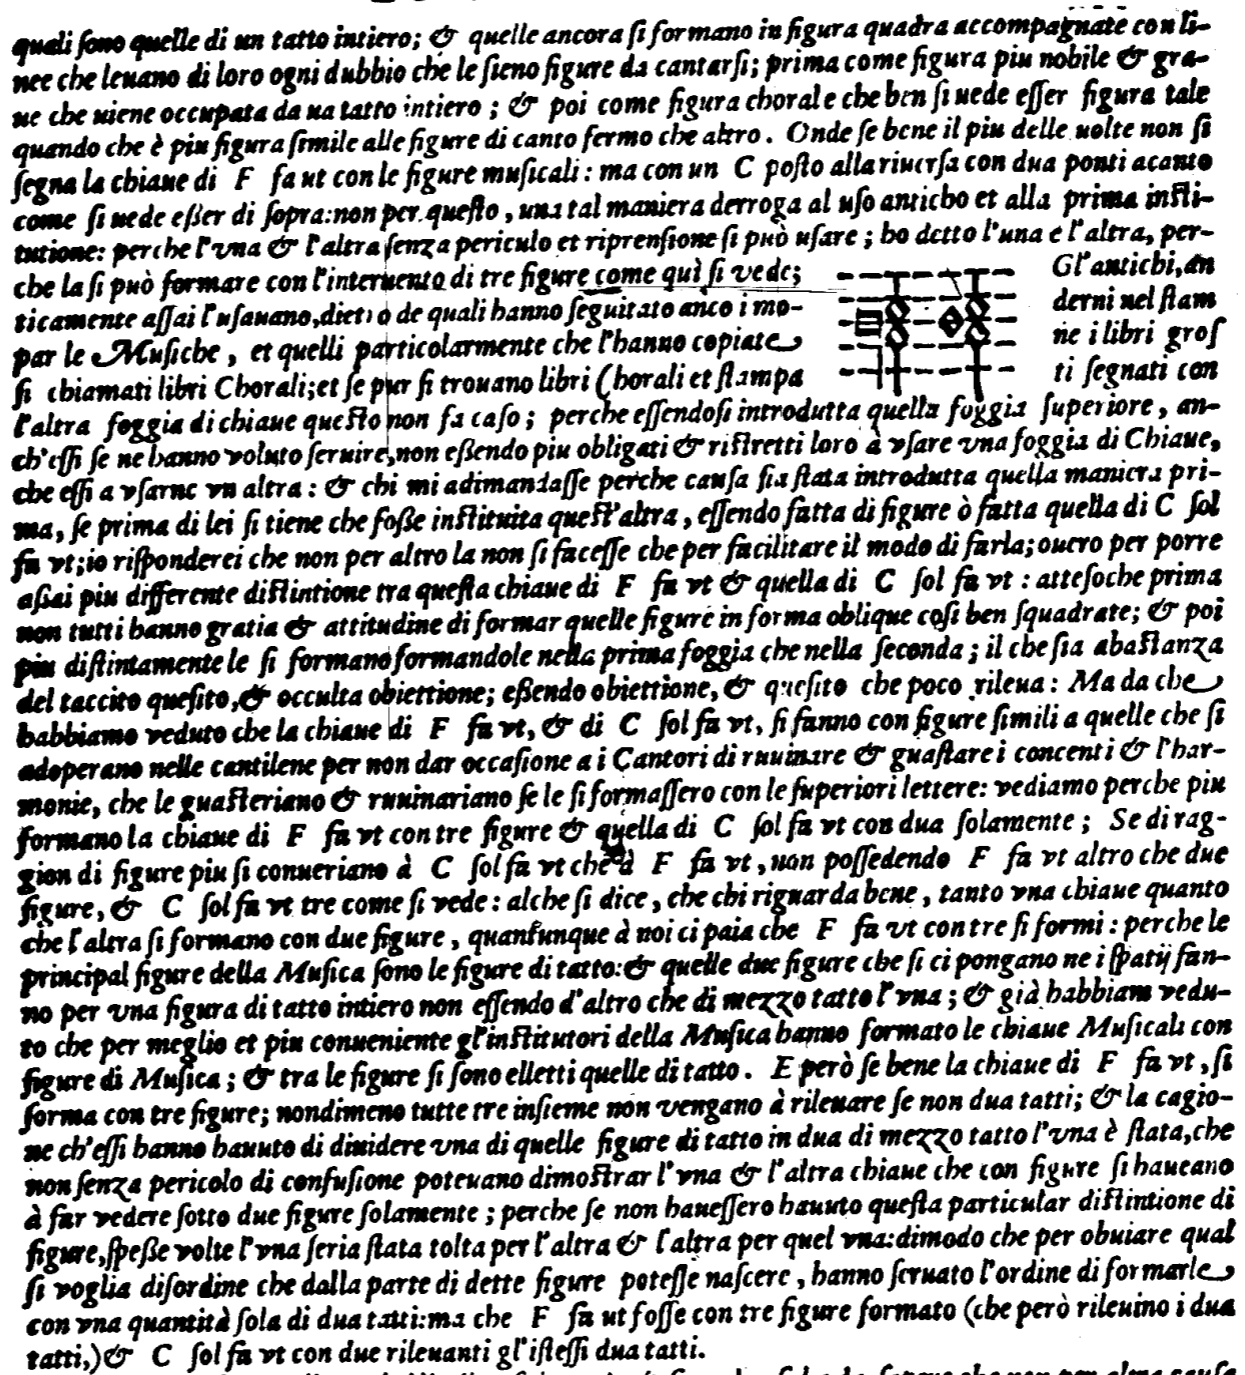 quali ſono quelle di un tatto intiero; & quelle ancora ſi formano in figura quadra accompagnate con li-
nee che leuano di loro ogni dubbio che le ſieno figure da cantarſi; prima come figura piu nobile & gra-
ue che uiene occupata da un tatto intiero ; & poi come figura chorale che ben ſi uede eſſer figura tale
quando che è piu figura ſimile alle figure di canto fermo che altro. Onde ſe bene il piu delle uolte non ſi
ſegna la chiaue di F fa ut con le figure muſicali: ma con un C poſto alla riuerſa con dua ponti acanto
come ſi uede eßer di ſopra: non per queſto, una tal maniera derroga al uſo anticho et alla prima inſti-
tutione: perche l'vna & l'altra ſenza periculo et riprenſione ſi può uſare ; ho detto l'una e l'altra, per-
che la ſi può formare con l'interuento di tre figure come quì ſi vede;
Gl'antichi, an
ticamente aſſai l'uſauano, dietro de quali hanno ſeguitato anco i mo-
derni nel ſtam
par le Muſiche, et quelli particolarmente che l'hanno copiate
ne i libri groſ
ſi chiamati libri Chorali; et ſe pur ſi trouano libri Chorali et ſtampa
ti ſegnati con
l'altra foggia di chiaue queſto non fa caſo ; perche eſſendoſi introdutta quella foggia ſuperiore, an-
ch'eſſi ſe ne hanno voluto ſeruire, non eßendo piu obligati & riſtretti loro à vſare vna foggia di Chiaue,
che eſſi a vſarne vn altra : & chi mi adimandaſſe perche cauſa ſia ſtata introdutta quella maniera pri-
ma, ſe prima di lei ſi tiene che foße inſtituita queſt'altra, eſſendo fatta di figure ò fatta quella di C ſol
fa vt; io riſponderei che non per altro la non ſi faceſſe che per facilitare il modo di farla; ouero per porre
aßai piu differente diſtintione tra queſta chiaue di F fa vt & quella di C ſol fa vt : atteſoche prima
non tutti hanno gratia & attitudine di formar quelle figure in forma oblique coſi ben ſquadrate; & poi
piu diſtintamente le ſi formano formandole nella prima foggia che nella ſeconda ; il che ſia abaſtanza
del taccito queſito, & occulta obiettione; eßendo obiettione, & queſito che poco rileua : Ma da che
habbiamo veduto che la chiaue di F fa vt, & di C ſol fa vt, ſi fanno con figure ſimili a quelle che ſi
adoperano nelle cantilene per non dar occaſione a i Cantori di ruuinare & guaſtare i concenti & l'har-
monie, che le guaſteriano & ruuinariano ſe le ſi formaſſero con le ſuperiori lettere: vediamo perche piu
formano la chiaue di F fa vt con tre figure & quella di C ſol fa vt con dua ſolamente ; Se di rag-
gion di figure piu ſi conueriano à C ſol fa vt che à F fa vt, non poſſedendo F fa vt altro che due
figure, & C ſol fa vt tre come ſi vede : alche ſi dice, che chi riguarda bene, tanto vna chiaue quanto
che l'altra ſi formano con due figure, quantunque à noi ci paia che F fa vt con tre ſi formi : perche le
principal figure della Muſica ſono le figure di tatto: & quelle due figure che ſi ci pongano ne i ſpatij fan-
no per vna figura di tatto intiero non eſſendo d'altro che di mezzo tatto l'vna ; & già habbiam vedu-
to che per meglio et piu conueniente gl'inſtitutori della Muſica hanno formato le chiaue Muſicali con
figure di Muſica ; & tra le figure ſi ſono elletti quelle di tatto. E però ſe bene la chiaue di F fa vt, ſi
forma con tre figure; nondimeno tutte tre inſieme non vengano à rileuare ſe non dua tatti; & la cagio-
ne ch'eſſi hanno hauuto di diuidere vna di quelle figure di tatto in dua di mezzo tatto l'vna è ſtata, che
non ſenza pericolo di confuſione poteuano dimoſtrar l'vna & l'altra chiaue che con figure ſi haueano
à far vedere ſotto due figure ſolamente ; perche ſe non haueſſero hauuto queſta particular diſtintione di
figure, ſpeße volte l'vna ſeria ſtata tolta per l'altra & l'altra per quel vna: dimodo che per obuiare qual
ſi voglia diſordine che dalla parte di dette figure poteſſe naſcere, hanno ſeruato l'ordine di formarle
con vna quantità ſola di dua tatti: ma che F fa ut foſſe con tre figure formato (che però rileuino i dua
tatti,) & C ſol fa vt con due rileuanti gl'iſteſſi dua tatti.